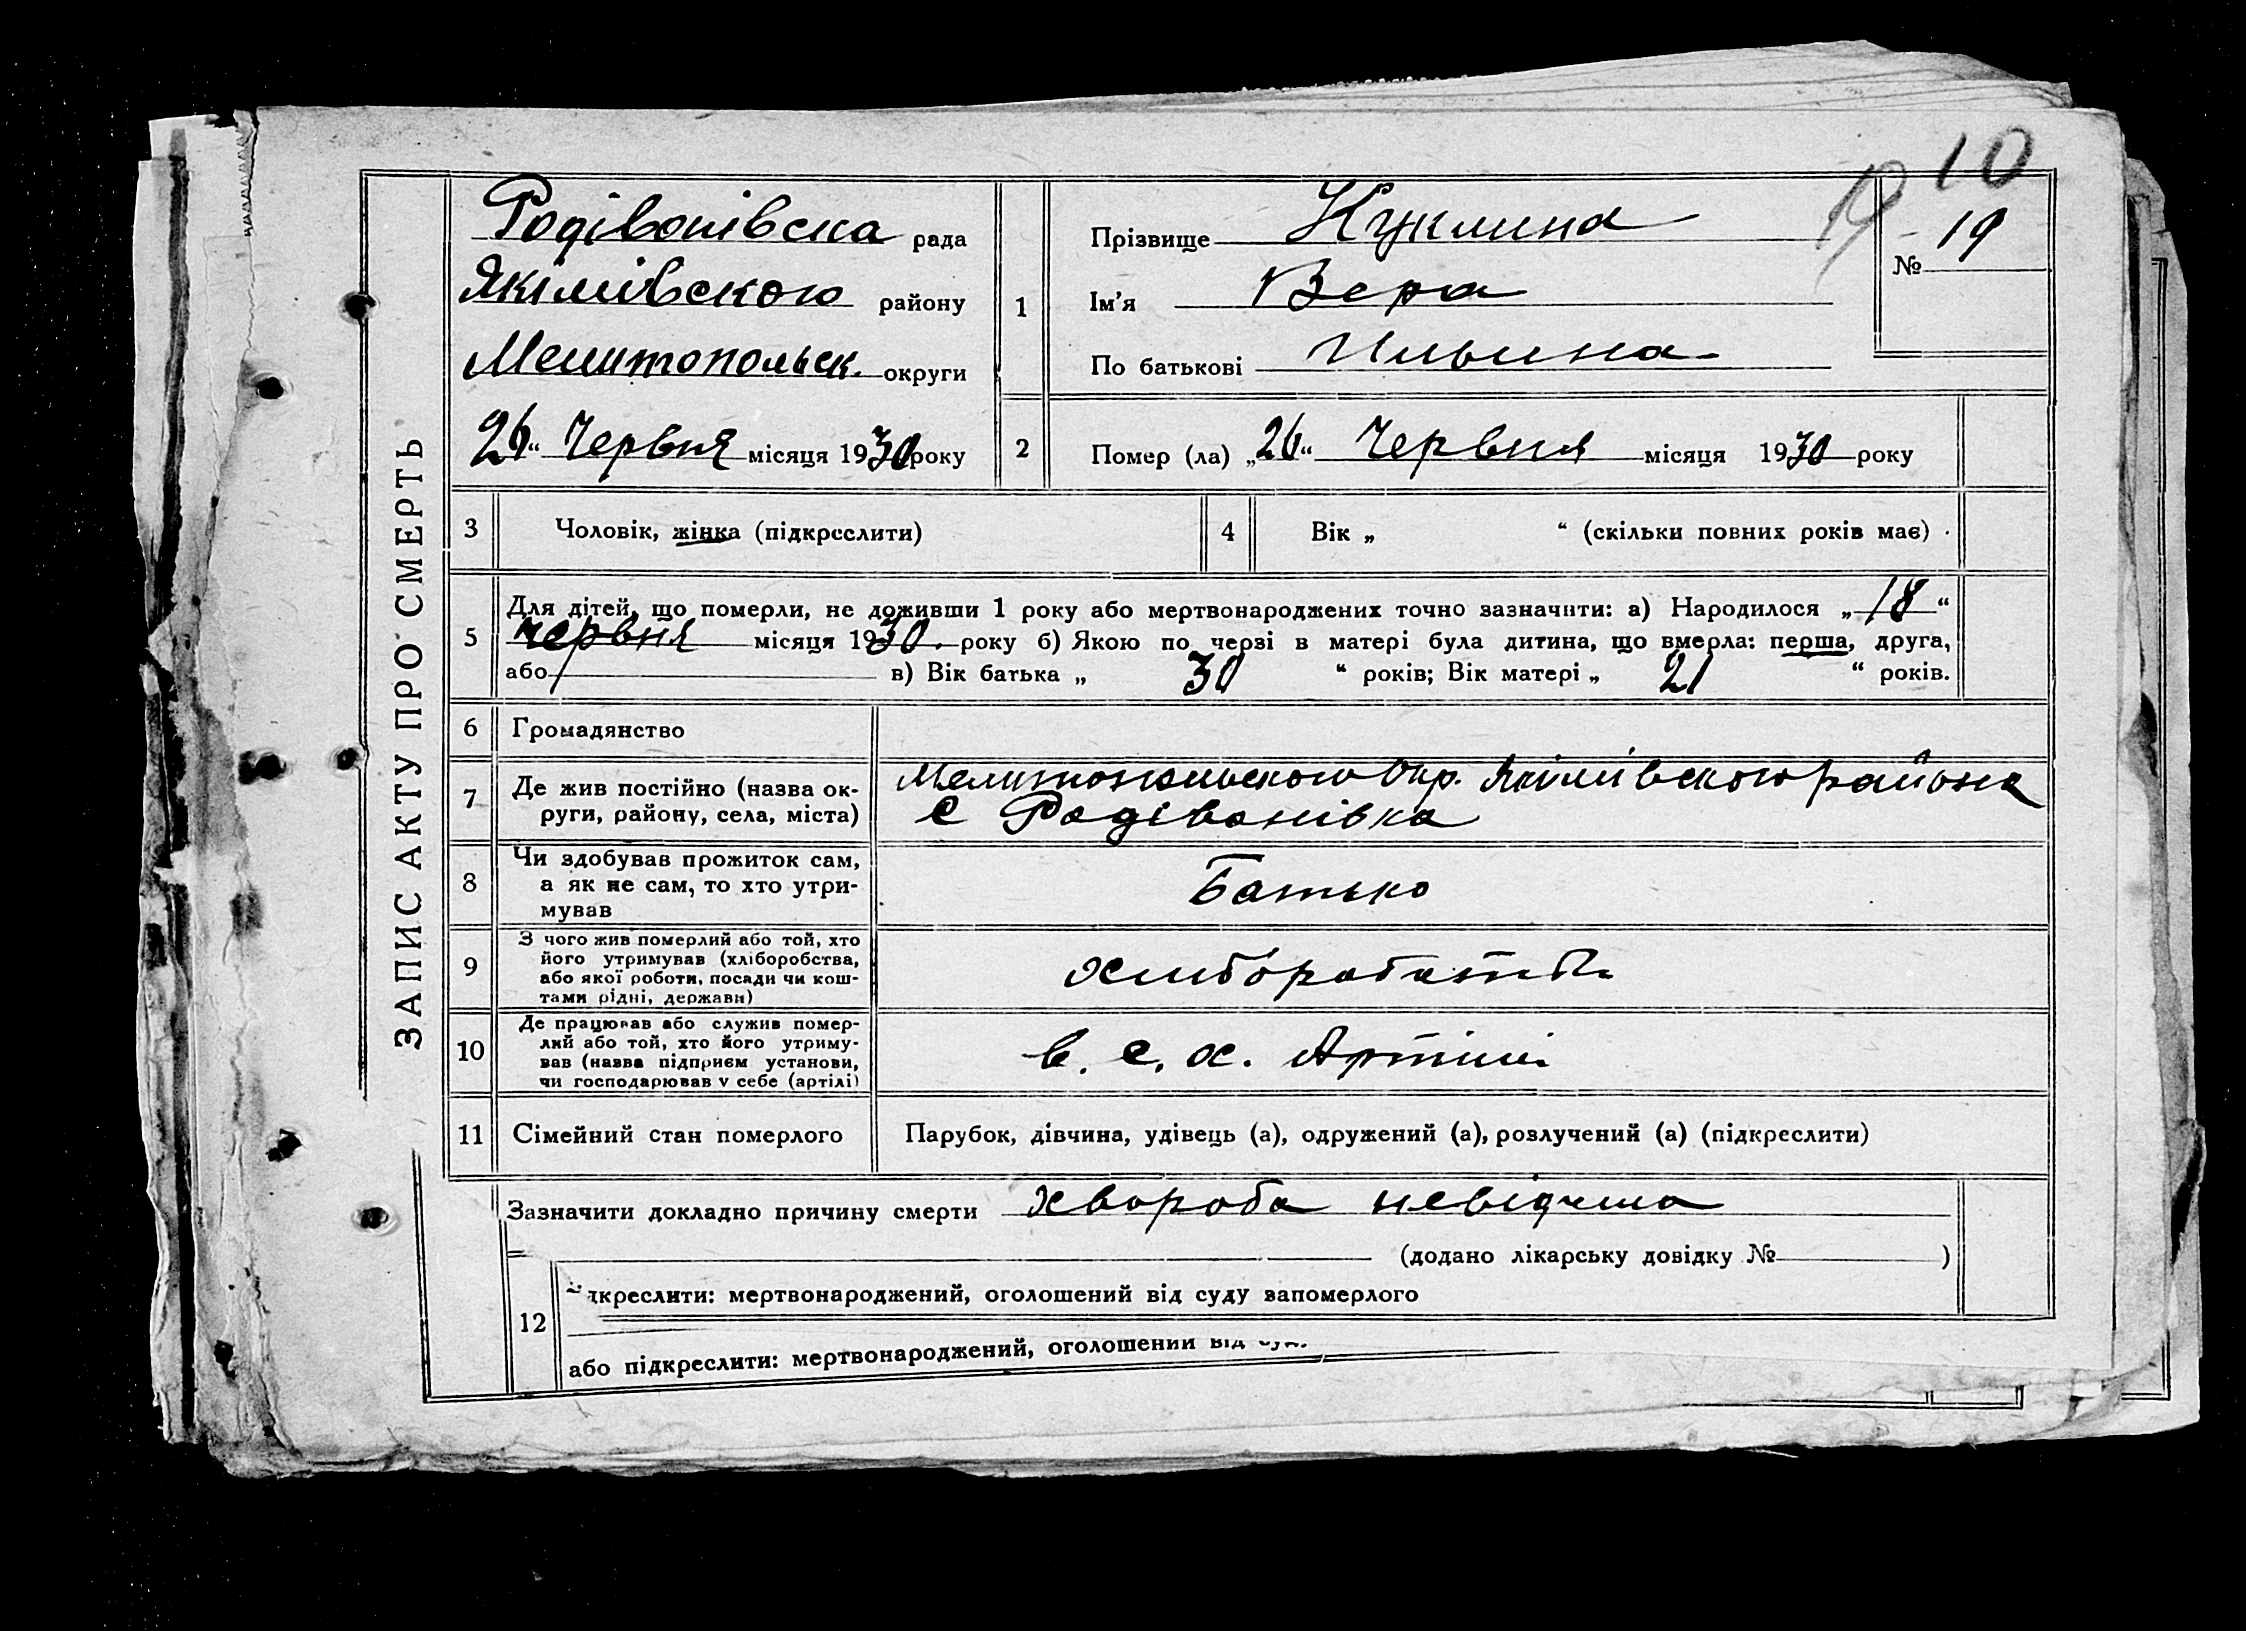 10
19
ЗАПИС АКТУ ПРО СМЕРТЬ
Родівонівска рада
Якімівского району
Мелитопольск. округи
26 “ Червня місяця 1930 року
1
Прізвище Куклина
Ім’я Вера
По батькові Ильина
№ 19
2
Помер (ла) „26“ Червня місяця 1930 року
3 Чоловік, жінка (підкреслити)
4 Вік „ “ (скільки повних років має)
5
Для дітей, що померли, не доживши 1 року або мертвонароджених точно зазначити: а) Народилося „18“
червня місяця 1930. року б) Якою по черзі в матері була дитина, що вмерла: перша, друга,
або в) Вік батька „ 30 “ років; Вік матері „ 21 “ років.
6 Громадянство
7 Де жив постійно (назва ок-
руги, району, села, міста)
Мелитопольского Окр. Якімівского района
с Родівонівка
8 Чи здобував прожиток сам,
а як не сам, то хто утри-
мував
Батько
9 З чого жив померлий або той, хто
його утримував (хліборобства,
або якої роботи, посади чи кош-
тами рідні, держави)
10 Де працював або служив помер-
лий або той, хто його утриму-
вав (назва підприєм установи,
чи господарював у себе (артілі)
в. с. х. Артілі
11 Сімейний стан померлого
Парубок, дівчина, удівець (а), одружений (а), розлучений (а) (підкреслити)
Зазначити докладно причину смерти хвороба невідома
(додано лікарську довідку № )
дкреслити: мертвонароджений, оголошений від суду запомерлого
12
або підкреслити: мертвонароджений, оголошений від